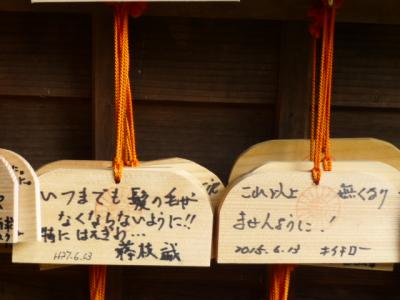 いつまでも 髪の毛が
なくならないように!!
特に はえぎわ…
H27.6.13 藤枝 誠
これ以上 無くなり
ませんように!
2015.6.13 キイチロー